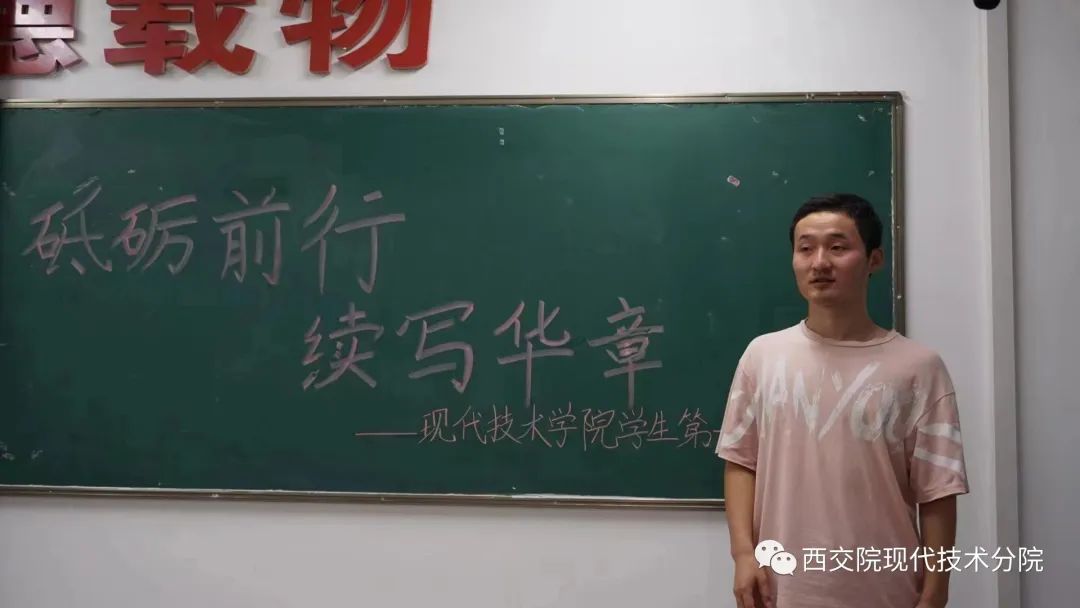 德载物
砥砺前行
续写华章
——现代技术学院学生第一
西交院现代技术分院